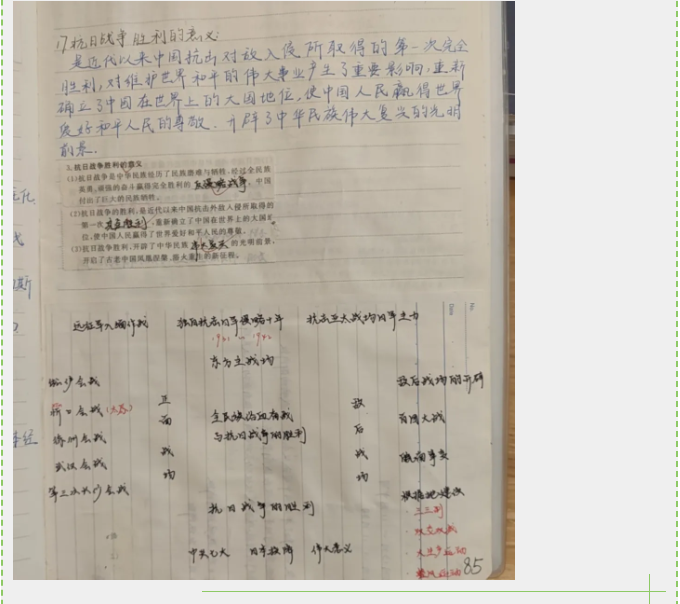 17.抗日战争胜利的意义:
是近代以来中国抗击对敌入侵所取得的第一次完全
胜利,对维护世界和平的伟大事业产生了重要影响,重新
确立了中国在世界上的大国地位,使中国人民赢得世界
爱好和平人民的尊敬.开辟了中华民族伟大复兴的光明
前景.
3.抗日战争胜利的意义
(1)抗日战争是中华民族经历了民族磨难与牺牲,经过全民族
英勇、顽强的奋斗赢得完全胜利的反侵略战争,中国
付出了巨大的民族牺牲。
(2)抗日战争的胜利,是近代以来中国抗击外敌入侵所取得的
第一次完全胜利,重新确立了中国在世界上的大国地
位,使中国人民赢得了世界爱好和平人民的尊敬。
(3)抗日战争胜利,开辟了中华民族伟大复兴的光明前景,
开启了古老中国凤凰涅槃、浴火重生的新征程。
No.
Date
远征军入缅作战 独自抗击日军侵略十年 抗击亚太战场日军主力
1931 — 1942
东方主战场
淞沪会战 敌后战场的开辟
忻口会战 正面战场 全民族浴血奋战 敌后战场 百团大战
徐州会战 与抗日战争的胜利
武汉会战 皖南事变
第三次长沙会战 根据地建设
抗日战争的胜利 三三制
中共七大 日本投降 伟大意义 大生产运动
整风运动
85